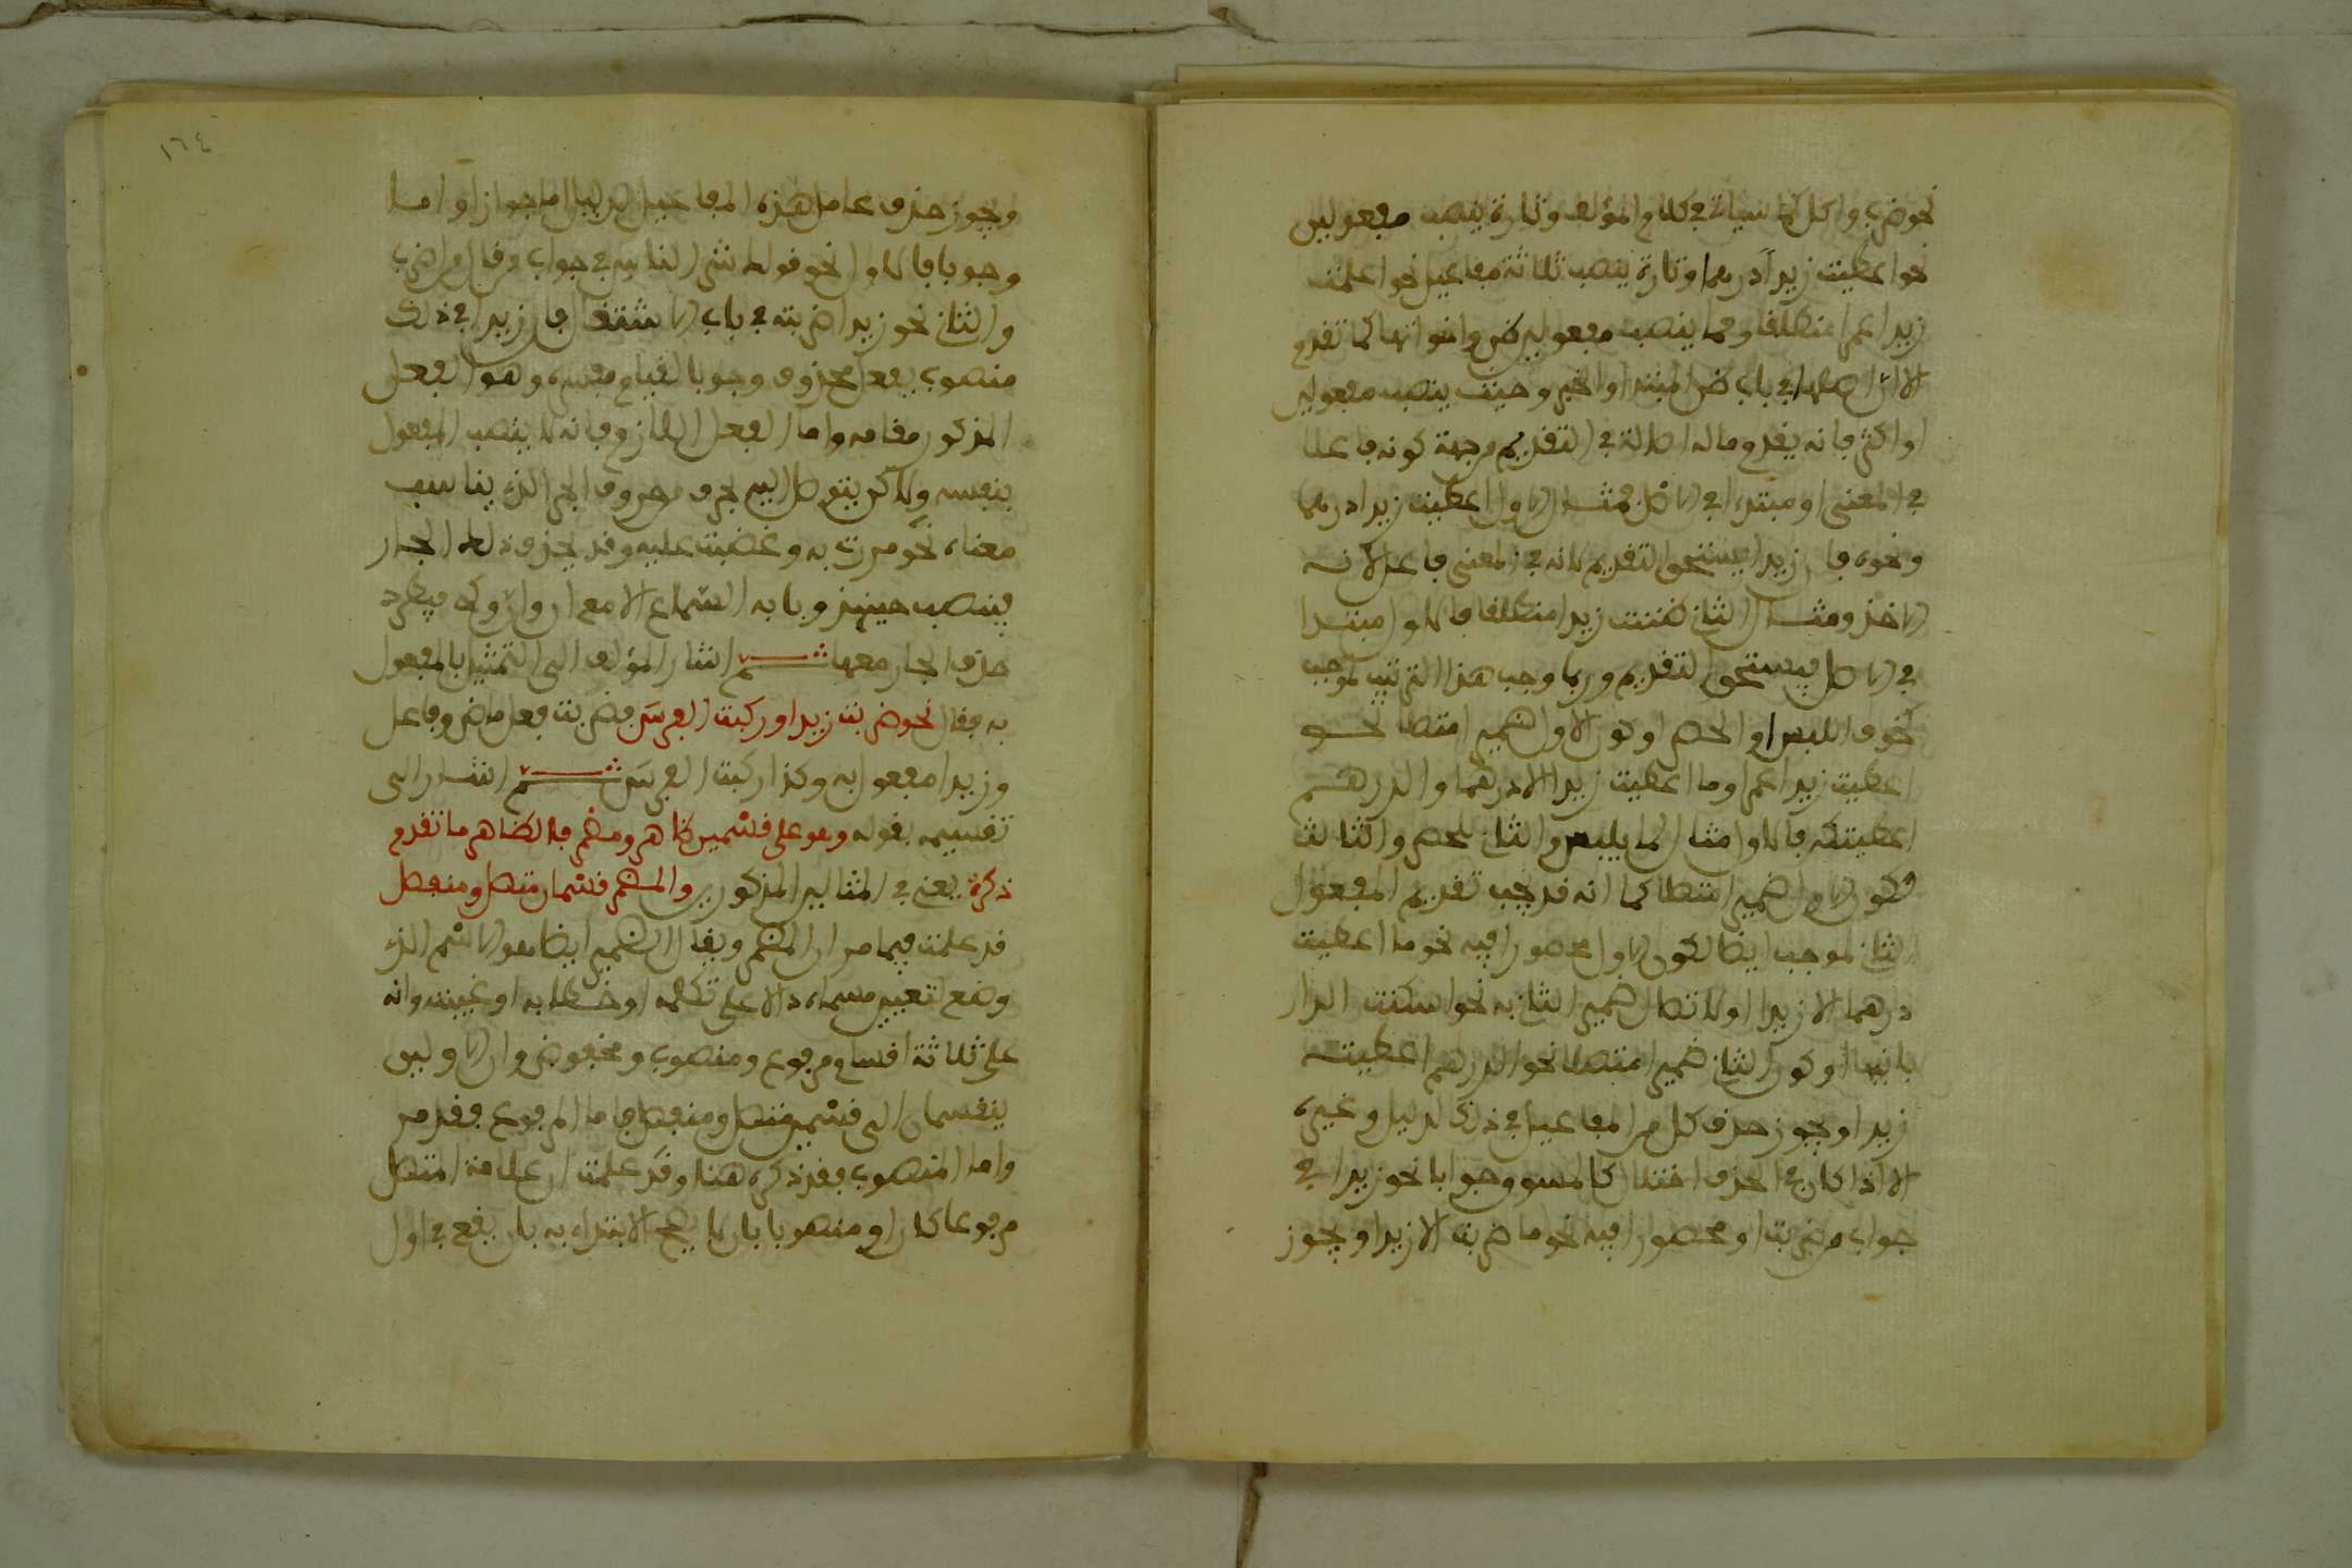 نحو ضرب واكل كما سياتي في كلام المؤلف وتارة ينصب مفعولين
نحو اعطيت زيدا درهما وتارة ينصب ثلاثة مفاعيل نحو اعلمت
زيدا عمرا منطلقا ومما ينصب مفعولين ظن واخواتها كما تقدم
لان اصلها في باب ظن المبتدا والخبر وحيث ينصب مفعولين
او اكثر فانه يقدم ما له اصالة في التقديم من جهة كونه فاعلا
في المعنى او مبتدءا في الاصل فمثال الاول اعطيت زيدا درهما
ونحوه فان زيدا يستحق التقديم لانه في المعنى فاعل لانه
الاخذ ومثال الثاني ظننت زيدا منطلقا فالاول مبتدا
في الاصل فيستحق التقديم وربما وجب هذا الترتيب لموجب
كخوف اللبس او الحصر او كون الاول ضميرا متصلا نحو
اعطيت زيدا عمرا وما اعطيت زيدا الا درهما والدرهم
اعطيتكه فالاول مثال لما يلبس والثاني للحصر والثالث
لكون الاول ضميرا متصلا كما انه قد يجب تقديم المفعول
الثاني لموجب ايضا لكون الاول محصورا فيه نحو ما اعطيت
درهما الا زيدا او لاتصال ضمير الثاني به نحو اسكنت الدار
بانيها او كون الثاني ضميرا متصلا نحو الدرهم اعطيته
زيدا ويجوز حذف كل من المفاعيل في ذلك لدليل وغيره
الا اذا كان في الحذف اختلال كالمسوق جوابا نحو زيدا في
جواب من ضربت او محصورا فيه نحو ما ضربت الا زيدا ويجوز
١٦٤
ويجوز حذف عامل هذه المفاعيل لدليل اما جوازا واما
وجوبا فالاول نحو قولك شر الناس في جواب من قال من اضرب
والثاني نحو زيدا ضربته في باب الاشتغال فان زيدا في ذلك
منصوب بفعل محذوف وجوبا لقيام مفسره وهو الفعل
المذكور مقامه واما الفعل اللازم فانه لا ينصب المفعول
بنفسه ولاكن يتوصل اليه بحرف من حروف الجر الذي يناسب
معناه نحو مررت به وغضبت عليه وقد يحذف ذلك الجار
فينصب حينئذ وبابه السماع الا مع ان وان وكي فيطرد
حذف الجار معها ثم اشار المؤلف الى التمثيل بالمفعول
به فقال نحو ضربت زيدا وركبت الفرس فضربت فعل ماض وفاعل
وزيدا مفعول به وكذا ركبت الفرس ثم اشار الى
تقسيمه بقوله وهو على قسمين ظاهر ومضمر فالظاهر ما تقدم
ذكره يعني في المثالين المذكورين والمضمر قسمان متصل ومنفصل
قد علمت فيما مر ان المضمر ويقال الضمير ايضا هو الاسم الذي
وضع لتعيين مسماه دالا على تكلمه او خطابه او غيبته وانه
على ثلاثة اقسام مرفوع ومنصوب ومخفوض وان الاولين
ينقسمان الى قسمين متصل ومنفصل فاما المرفوع فقد مر
واما المنصوب فقد ذكره هنا وقد علمت ان علامة المتصل
مرفوعا كان او منصوبا بان لا يصح الابتداء به بان يقع في اول